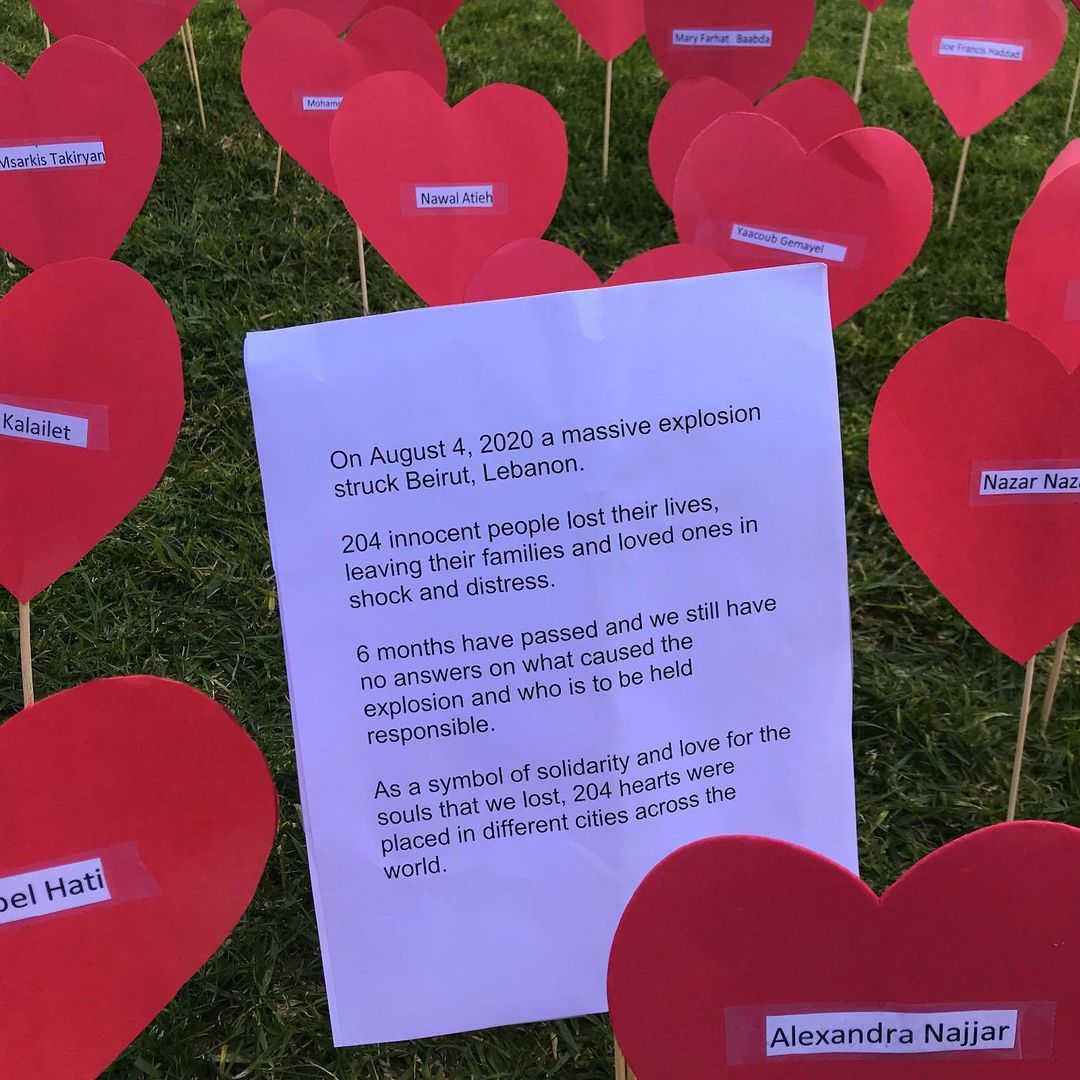 Mary Farhat Baabda
Joe Francis Haddad
Msarkis Takiryan
Nawal Atieh
Yaacoub Gemayel
Kalailet
Nazar
On August 4, 2020 a massive explosion
struck Beirut, Lebanon.
204 innocent people lost their lives,
leaving their families and loved ones in
shock and distress.
6 months have passed and we still have
no answers on what caused the
explosion and who is to be held
responsible.
As a symbol of solidarity and love for the
souls that we lost, 204 hearts were
placed in different cities across the
world.
Hati
Alexandra Najjar